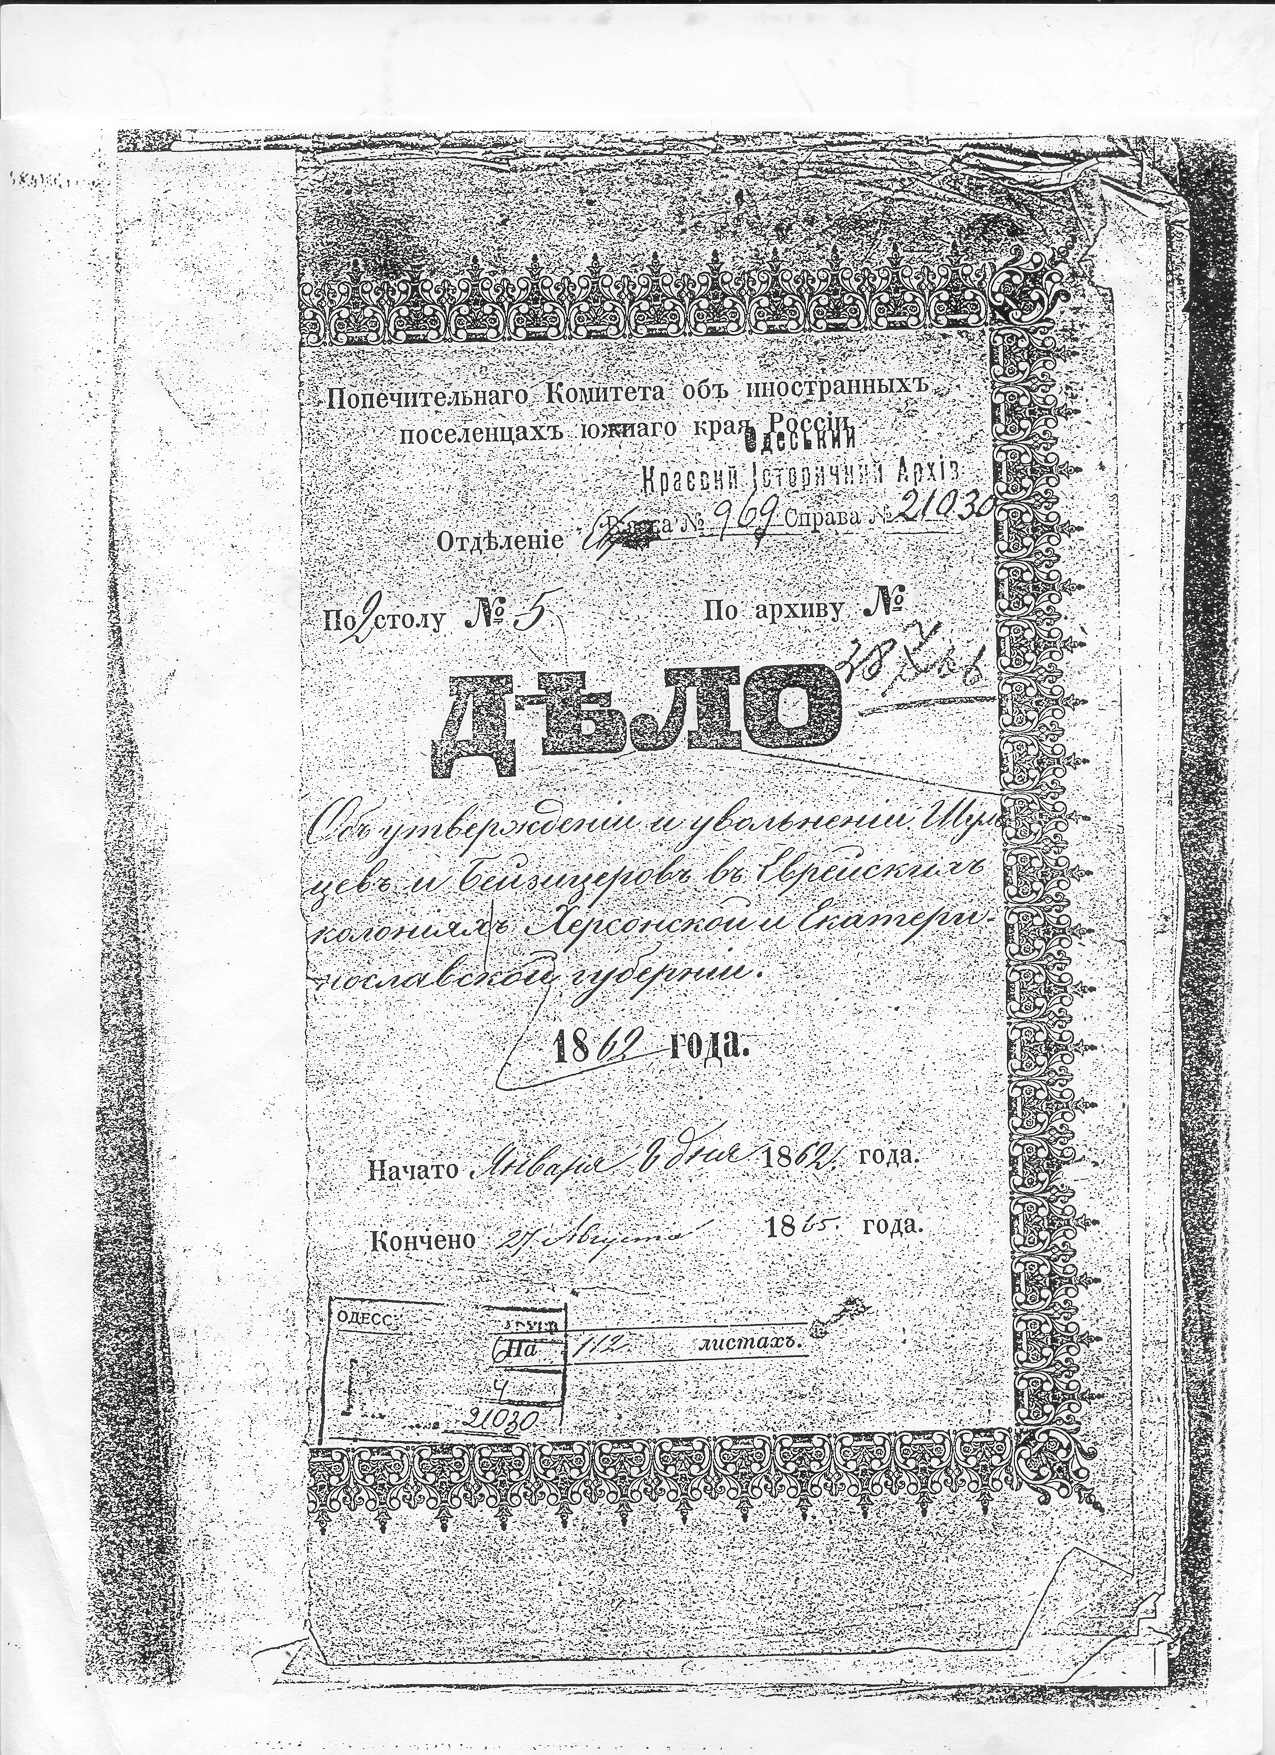 Попечительнаго Комитета объ иностранныхъ
поселенцахъ южнаго края Россіи.
Одеський
Краєвий Історичний Архів
В'язка № 969 Справа № 21030
Отдѣленіе
По 2 столу № 5. По архиву №
ДѢЛО
Объ утвержденіи и увольненіи Шуль
цевъ и Бейзицеровъ въ Еврейскихъ
колоніяхъ Херсонской и Екатери-
нославской губерніи.
1862 года.
Начато Января 8 дня 1862. года.
Кончено 27 Августа 1865. года.
ОДЕСС
На 112 листахъ.
4
21030